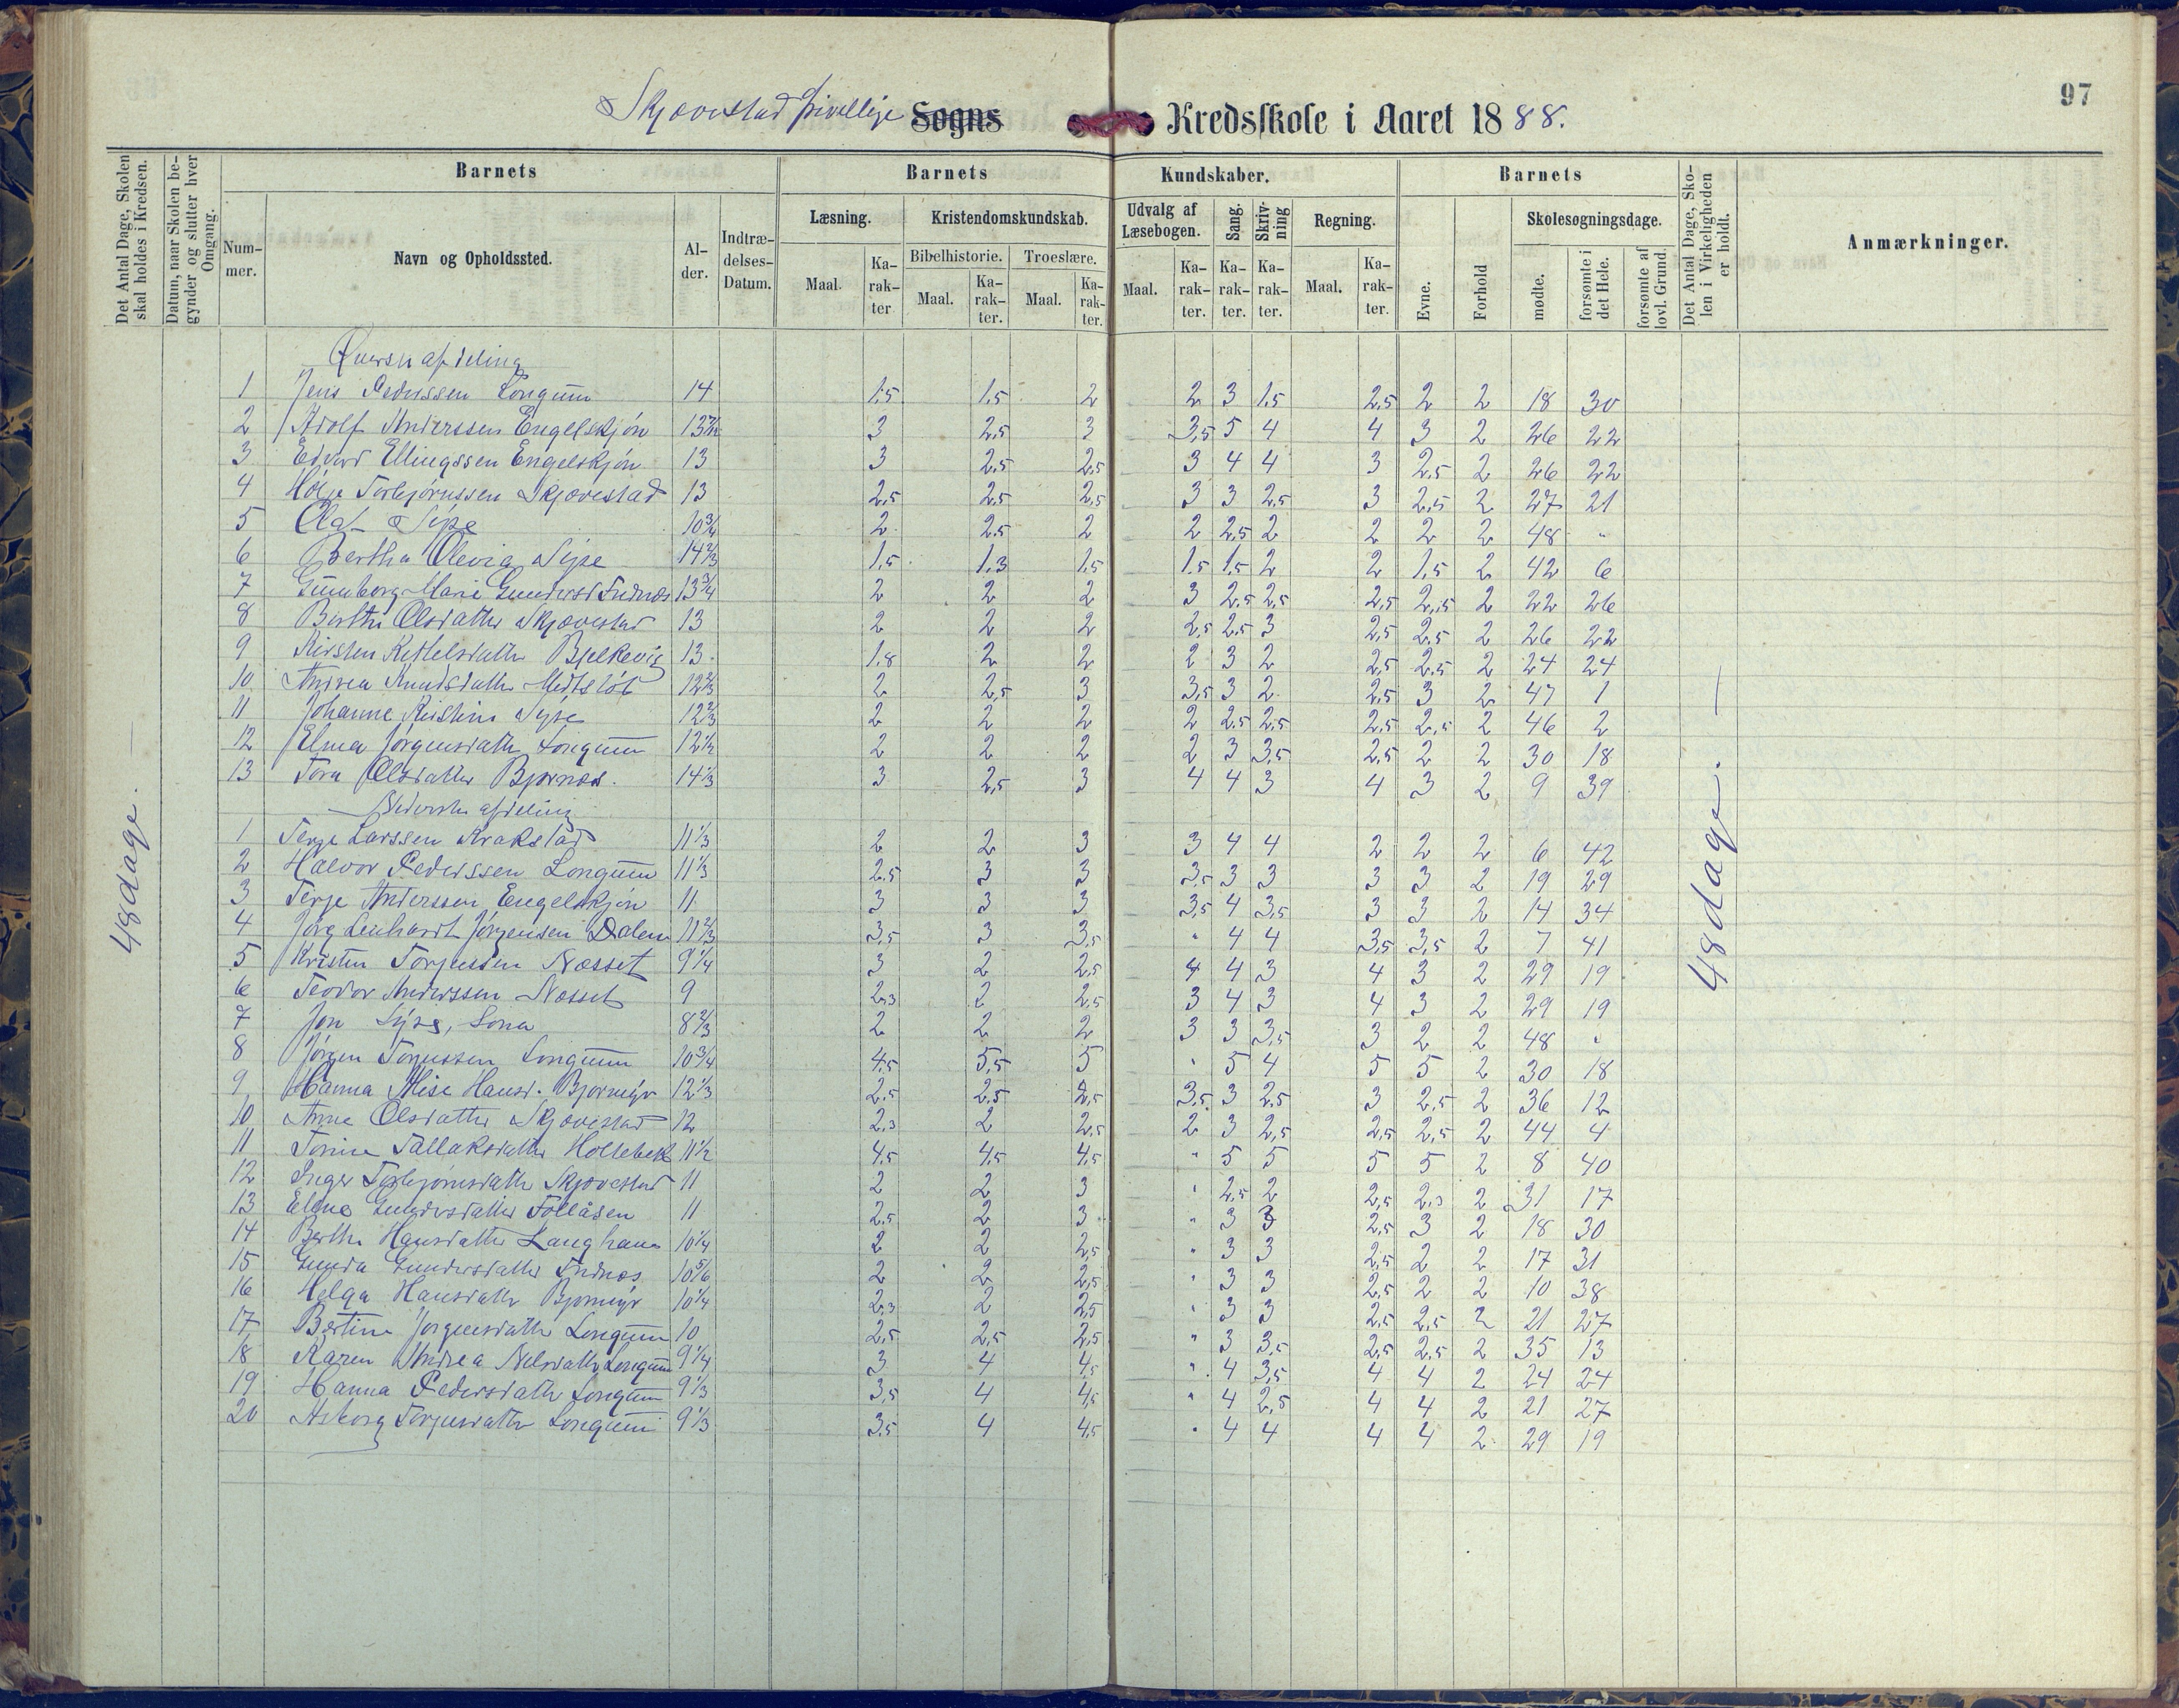 97
Skjævestad frivillige Sogns Kredsskole i Aaret 1888.
Det Antal Dage, Skolen skal holdes i Kredsen.
Datum, naar Skolen begynder og slutter hver Omgang.
Barnets Barnets Kundskaber. Barnets
Det Antal Dage, Skolen i Virkeligheden er holdt.
Anmærkninger.
Nummer. Navn og Opholdssted. Alder. Indtrædelses-Datum.
Læsning. Kristendomskundskab. Udvalg af Læsebogen. Sang. Skrivning Regning. Skolesøgningsdage.
Bibelhistorie. Troeslære.
Maal. Karakter Maal. Karakter. Maal. Karakter. Maal. Karakter. Karakter. Karakter. Maal. Karakter. Evne. Forhold mødte. forsømte i det Hele. forsømte af lovl. Grund.
48 dage. —
48 dage. —
Øverste afdeling
1 Jens Pederssen Longum 14 1,5 1,5 2 2 3 1,5 2,5 2 2 18 30
2 Adolf Anderssen Engelskjøn 13 3 2,5 3 3,5 5 4 4 3 2 26 22
3 Edvard Ellingssen Engelskjøn 13 3 2,5 2,5 3 4 4 3 2,5 2 26 22
4 Torbjørnssen Skjævestad 13 2,5 2,5 2,5 3 3 2,5 3 2,5 2 27 21
5 Olaf 10 3/4 2 2,5 2 2 2,5 2 2 2 2 48 "
6 Bertha Olevia 14 2/3 1,5 1,3 1,5 1,5 1,5 2 2 1,5 2 42 6
7 Gunborg Marie 13 3/4 2 2 2 3 2,5 2,5 2,5 2,5 2 22 26
8 Berthe Olsdatter Skjævestad 13 2 2 2 2,5 2,5 3 2,5 2,5 2 26 22
9 Kirsten Kittelsdatter Bjelkevig 13 1,8 2 2 2 3 2 2,5 2,5 2 24 24
10 Andrea Knudsdatter 12 2/3 2 2,5 3 3,5 3 2 2,5 3 2 47 1
11 Johanne Kristine 12 2/3 2 2 2 2 2,5 2,5 2,5 2,5 2 46 2
12 Elma Jørgensdatter Longum 12 1/2 2 2 2 2 3 3,5 2,5 2 2 30 18
13 Tora Olsdatter Bjørnæs. 14 1/3 3 2,5 3 4 4 3 4 3 2 9 39
Nederste afdeling
1 Terje Larssen Krakstad 11 1/3 2 2 3 3 4 4 2 2 2 6 42
2 Halvor Pederssen Longum 11 1/3 2,5 3 3 3,5 3 3 3 3 2 19 29
3 Terje Anderssen Engelskjøn 11 3 3 3 3,5 4 3,5 3 3 2 14 34
4 Jørg Lenhardt Jørgensen Dalen 11 2/3 3,5 3 3,5 " 4 4 3,5 3,5 2 7 41
5 Kristen Torjussen Næsset 9 1/4 3 2 2,5 4 4 3 4 3 2 29 19
6 Teodor Anderssen Næsset 9 2,3 2 2,5 3 4 3 4 3 2 29 19
7 Jon 8 2/3 2 2 2 3 3 3,5 3 2 2 48 "
8 Jörgen Torjussen Longum 10 3/4 4,5 5,5 5 " 5 4 5 5 2 30 18
9 Hanna Hansd. Bjørmyr 12 1/3 2,5 2,5 2,5 3,5 3 2,5 3 2,5 2 36 12
10 Anne Olsdatter Skjævestad 12 2,3 2 2,5 2 3 2,5 2,5 2,5 2 44 4
11 Tomine Tallaksdatter Holtebek 11 1/2 4,5 4,5 4,5 " 5 5 5 5 2 8 40
12 Inger Torbjørnsdatter Skjævestad 11 2 2 3 " 2,5 2 2,5 2,3 2 31 17
13 Gundersdatter Follåsen 11 2,5 2 3 " 3 3 2,5 3 2 18 30
14 Berthe Hansdatter Langhaue 10 1/4 2 2 2,5 " 3 3 2,5 2 2 17 31
15 Gunda Gundersdatter 10 5/6 2 2 2,5 " 3 3 2,5 2 2 10 38
16 Helga Hansdatter Bjørmyr 10 1/4 2,3 2 2,5 " 3 3 2,5 2,5 2 21 27
17 Bertine Jørgensdatter Longum 10 2,5 2,5 2,5 " 3 3,5 2,5 2,5 2 35 13
18 Karen Andrea Nelsdatter Longum 9 1/4 3 4 4,5 " 4 3,5 4 4 2 24 24
19 Hanna Pedersdatter Longum 9 1/3 3,5 4 4,5 " 4 2,5 4 4 2 21 27
20 Asborg Torjusdatter Longum 9 1/3 3,5 4 4,5 " 4 4 4 4 2 29 19